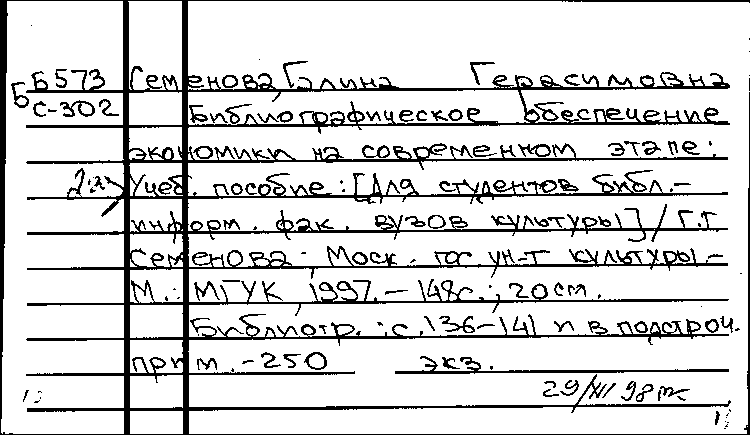 Б573 Семенова, Галина Герасимовна
Б С-302 Библиографическое обеспечение
экономики на современном этапе:
2э> Учеб. пособие: [Для студентов библ.-
информ. фак. вузов культуры] / Г.Г.
Семенова; Моск. гос. ун-т культуры.-
М.: МГУК, 1997.-148с.; 20см.
Библиогр.: с. 136-141 и в подстроч.
прим. -250 экз.
29/XII 98